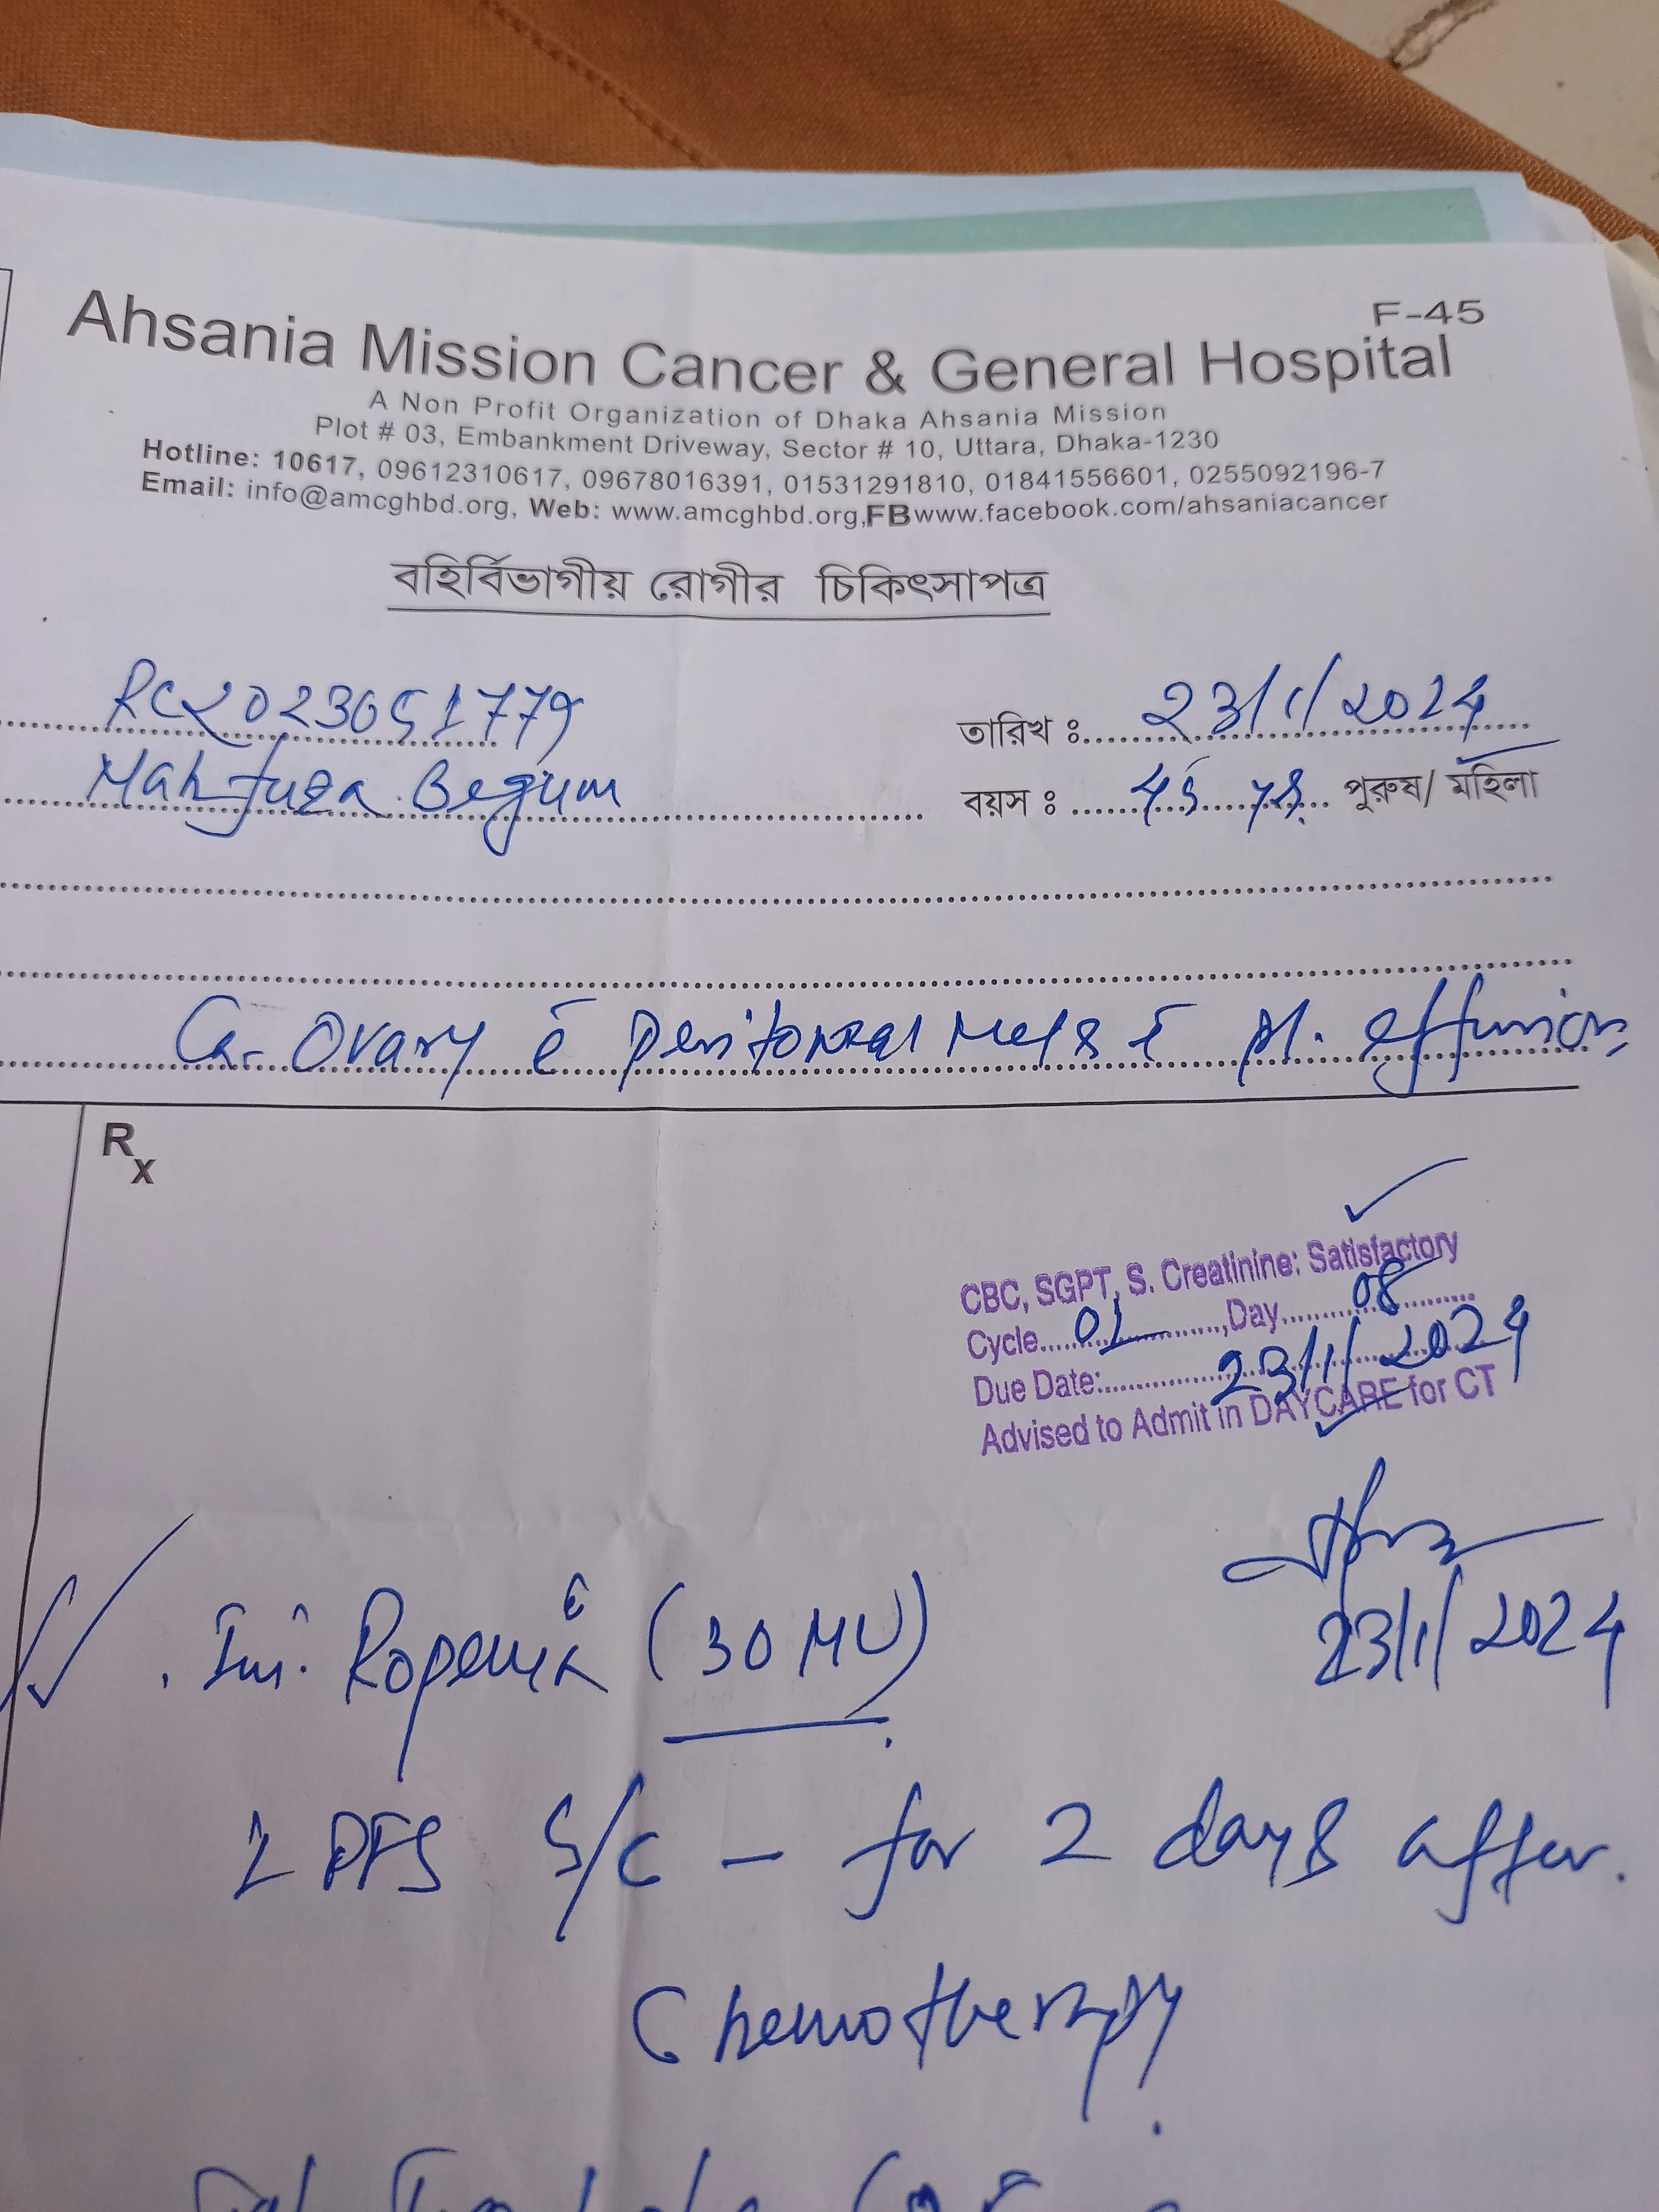 F-45
Ahsania Mission Cancer & General Hospital
A Non Profit Organization of Dhaka Ahsania Mission
Plot # 03, Embankment Driveway, Sector # 10, Uttara, Dhaka-1230
Hotline: 10617, 09612310617, 09678016391, 01531291810, 01841556601, 0255092196-7
Email: info@amcghbd.org, Web: www.amcghbd.org,FBwww.facebook.com/ahsaniacancer
বহির্বিভাগীয় রোগীর চিকিৎসাপত্র
RC2023051779 তারিখ ঃ 23/1/2024
Mahfuza Begum বয়স ঃ 45 পুরুষ/ মহিলা
Ca. Ovary c̄ peritoneal Mets c̄ pl. effusion
Rx
CBC, SGPT, S. Creatinine: Satisfactory
Cycle 01 ,Day 08
Due Date: 23/1/2024
Advised to Admit in DAYCARE for CT
23/1/2024
Inj. (30 MU)
PFS S/C - for 2 days after
Chemotherapy